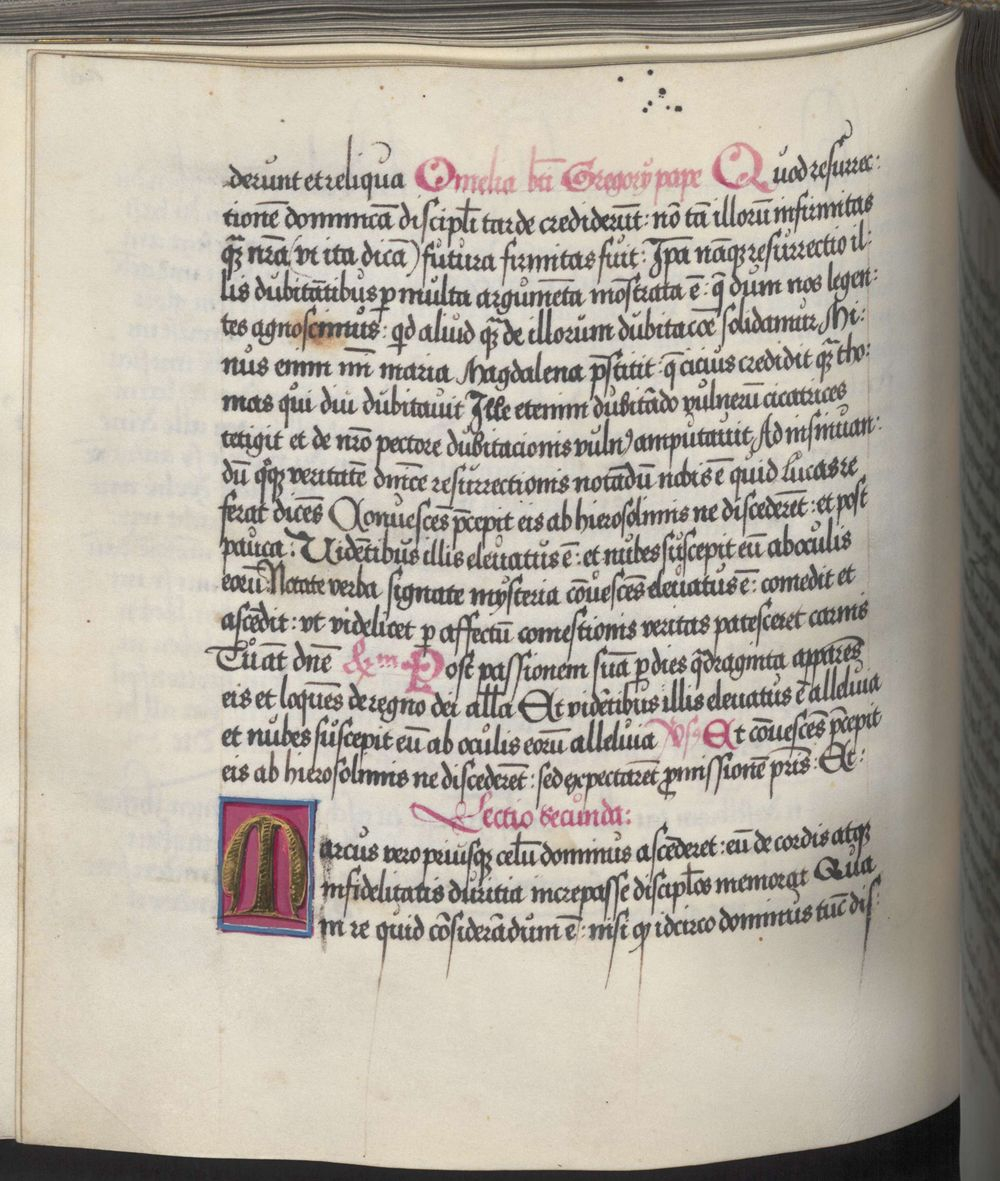 derunt et reliqua Omelia bti Gregory pape Quod resurrec:
tionē dominicā discipli tarde crediderūt: nō tā illorū infirmitas
qȝ nrā (vt ita dicā) futura firmitas fuit: Ipa nāqȝ resurrectio il:
lis dubitātibus p multa argumēta mōstrata ē: q̄ dum nos legen:
tes agnoscimus: qd aliud qȝ de illorum dubitaccōe solidamur Mi:
nus enim mi maria Magdalena pstitit: q̄ cicius credidit qȝ tho:
mas qui diu dubitavit Ille etenim dubitādo vulnerū cicatrices
tetigit et de nrō pectore dubitacionis vuln⁹ amputavit Ad insinuan:
dū qqȝ veritatē dnīce resurrectionis notādū nobis ē quid Lucas re
ferat dicēs Convescēs pcepit eis ab hierosolimis ne discederēt: et post
pauca: Vidētibus illis elevatus ē: et nubes suscepit eū ab oculis
eorū: Notate verba signate mysteria cōvescēs elevatus ē: comedit et
ascēdit: vt videlicet p affectū comestionis veritas patesceret carnis
Tu at dnē Post passionem suā p dies qdraginta apparēs
eis et loquēs de regno dei alla Et vidētibus illis elevatus ē alleluia
et nubes suscepit eū ab oculis eorū alleluia Vsꝰ Et cōvescēs pcepit
eis ab hierosolimis ne discederēt: sed expectarēt pmissionē pris: Et:
Lectio secunda:
Marcus vero priusqȝ celū dominus ascēderet: eū de cordis atqȝ
infidelitatis duritia increpasse disciplos memorat Qua
in re quid cōsiderādum ē: nisi qȝ idcirco dominus tūc dis: